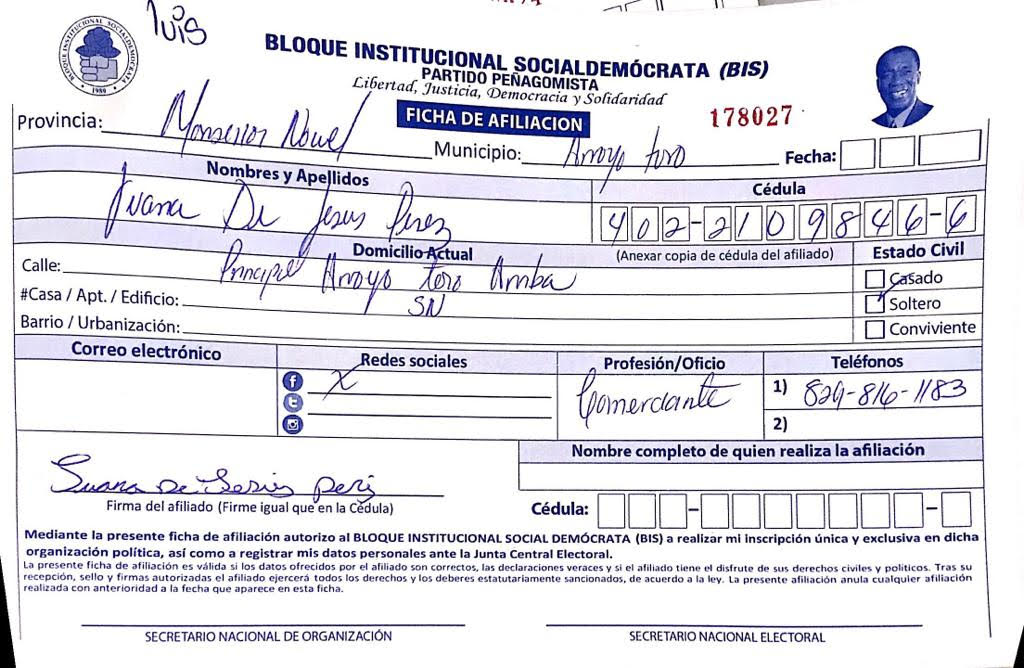 luis
BLOQUE INSTITUCIONAL SOCIALDEMOCRATA
1989
BLOQUE INSTITUCIONAL SOCIALDEMÓCRATA (BIS)
PARTIDO PEÑAGOMISTA
Libertad, Justicia, Democracia y Solidaridad
FICHA DE AFILIACION
178027
Provincia: Monseñor Nouel Municipio: Arroyo toro Fecha:
Nombres y Apellidos Cédula
Juana De Jesus Perez 402-2109846-6
Domicilio Actual (Anexar copia de cédula del afiliado) Estado Civil
Calle: Principal Arroyo toro Arriba Casado
#Casa / Apt. / Edificio: SN Soltero
Barrio / Urbanización: Conviviente
Correo electrónico Redes sociales Profesión/Oficio Teléfonos
X Comerciante 1) 829-816-1183
2)
Nombre completo de quien realiza la afiliación
Juana De Jesus Perez
Firma del afiliado (Firme igual que en la Cédula) Cédula:
Mediante la presente ficha de afiliación autorizo al BLOQUE INSTITUCIONAL SOCIAL DEMÓCRATA (BIS) a realizar mi inscripción única y exclusiva en dicha
organización política, así como a registrar mis datos personales ante la Junta Central Electoral.
La presente ficha de afiliación es válida si los datos ofrecidos por el afiliado son correctos, las declaraciones veraces y si el afiliado tiene el disfrute de sus derechos civiles y políticos. Tras su
recepción, sello y firmas autorizadas el afiliado ejercerá todos los derechos y los deberes estatutariamente sancionados, de acuerdo a la ley. La presente afiliación anula cualquier afiliación
realizada con anterioridad a la fecha que aparece en esta ficha.
SECRETARIO NACIONAL DE ORGANIZACIÓN SECRETARIO NACIONAL ELECTORAL